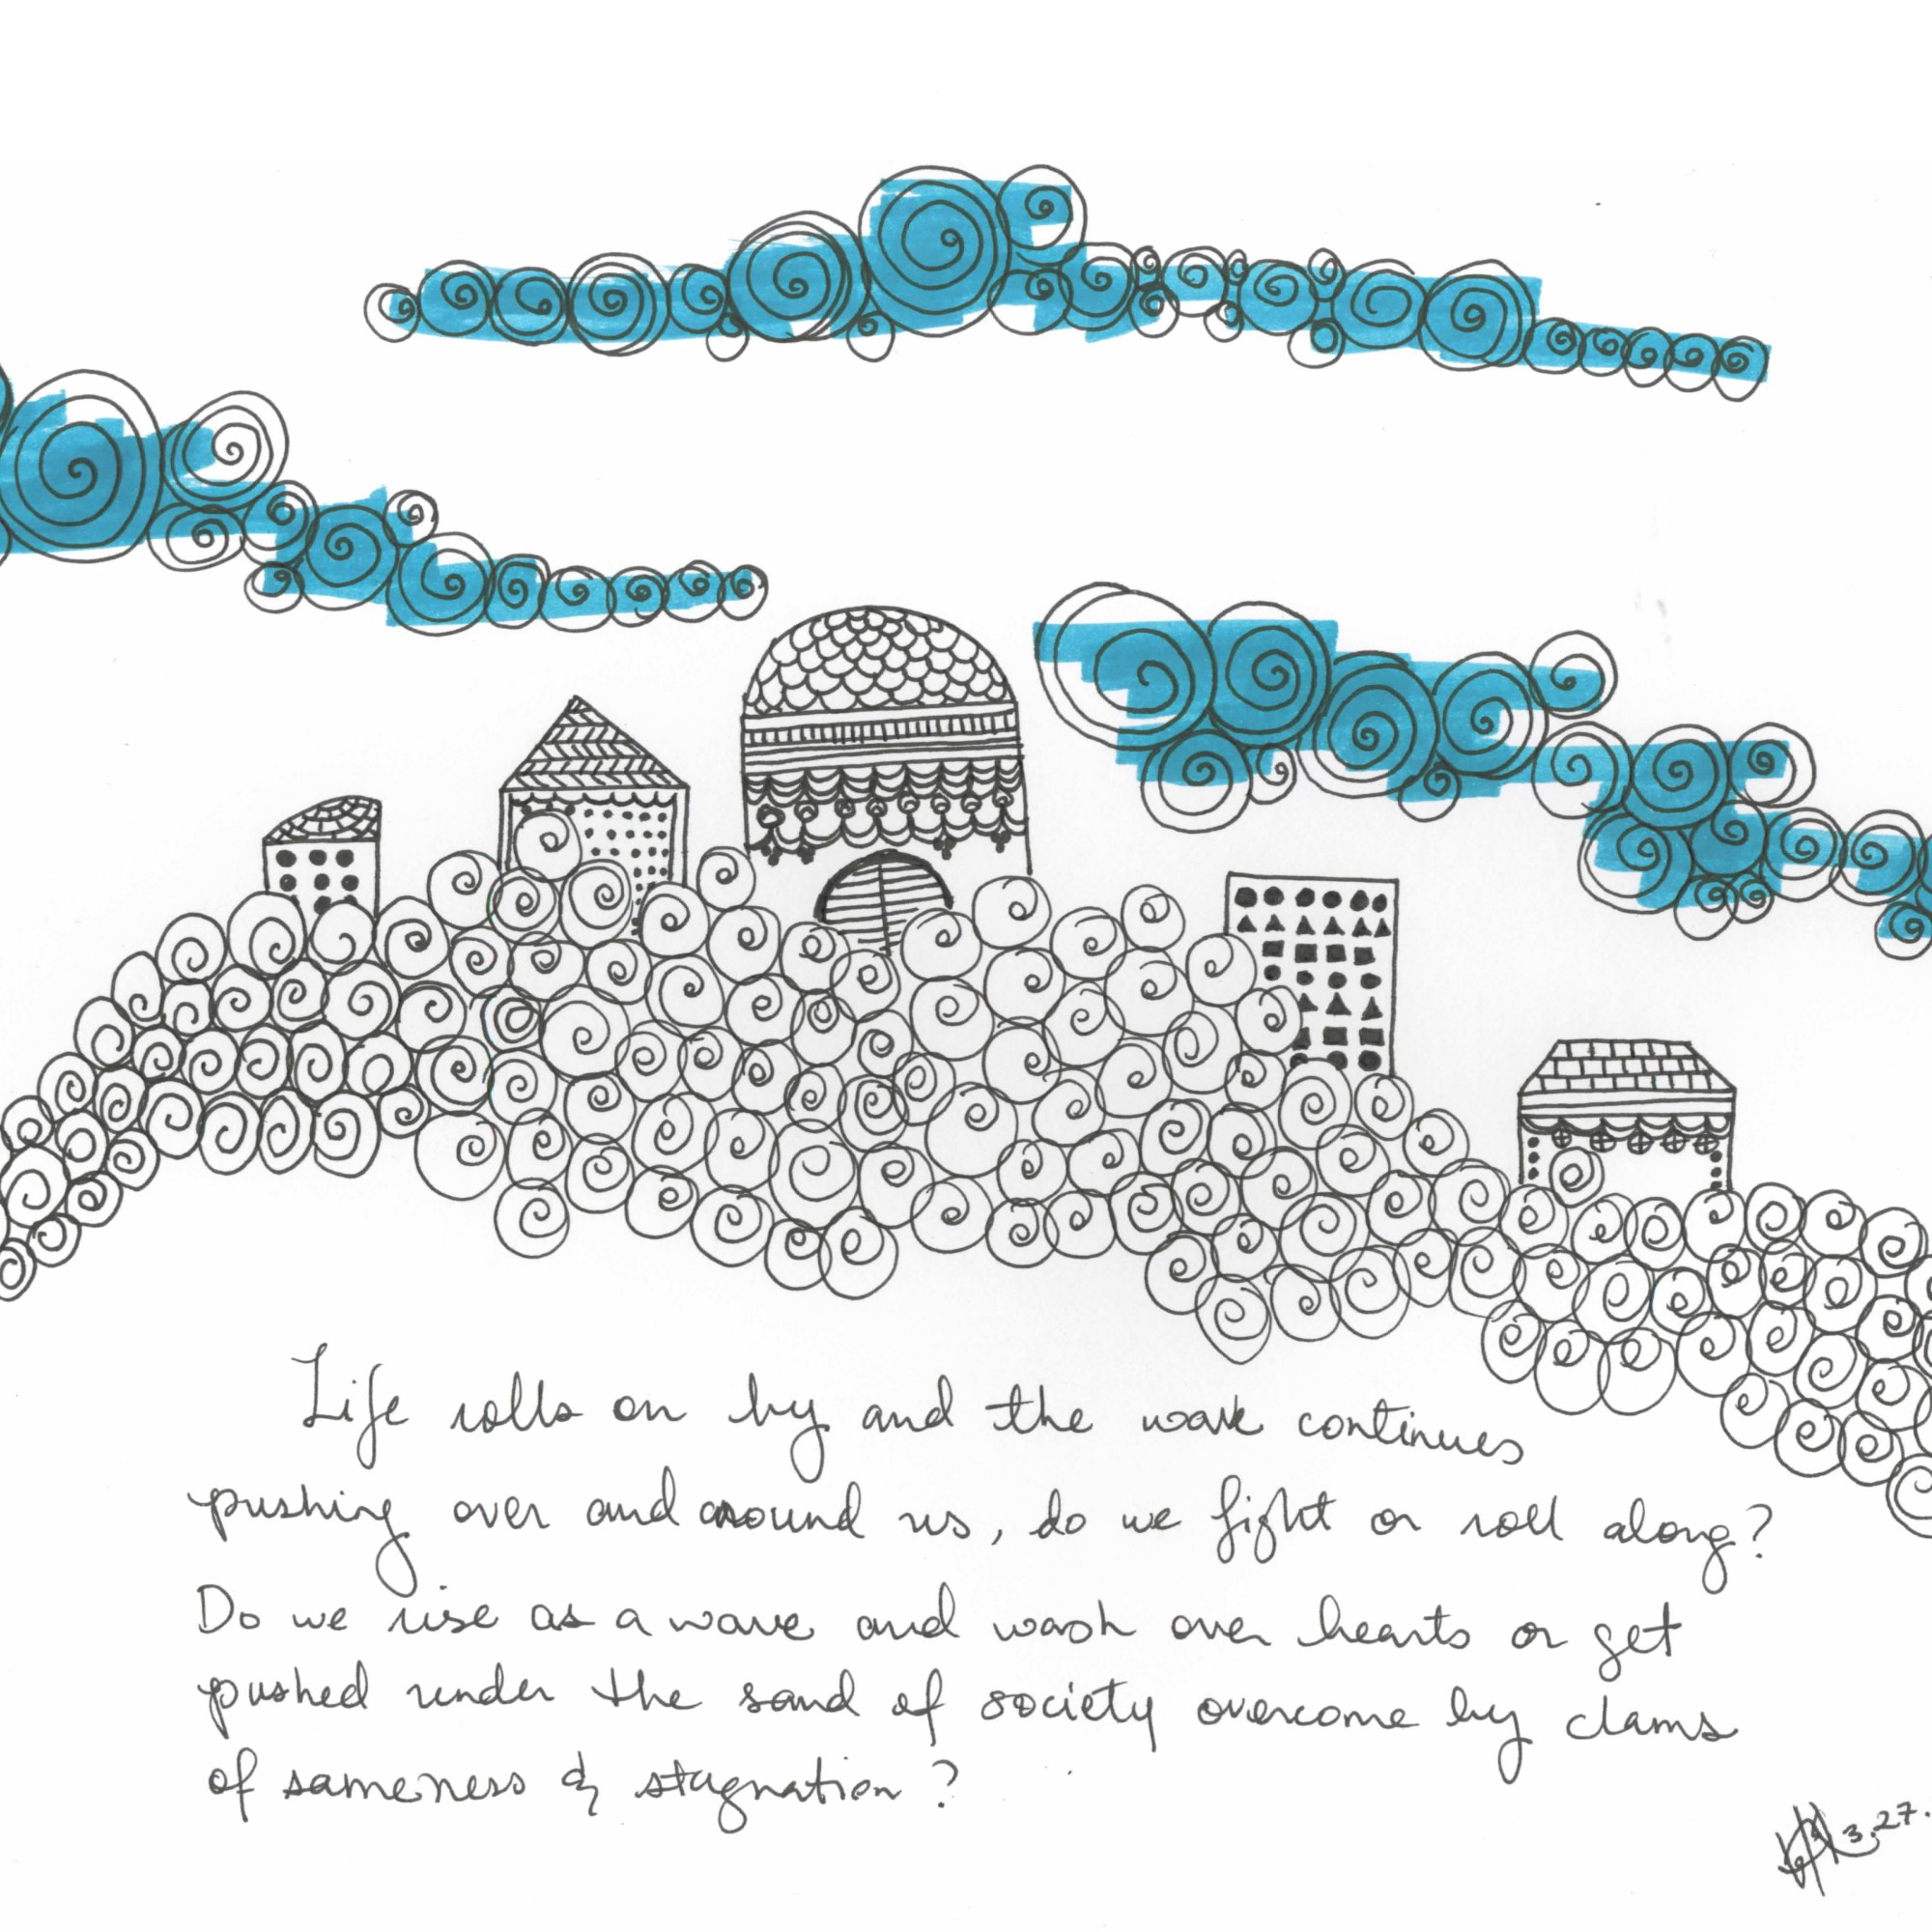 Life rolls on by and the wave continues
pushing over and around us, do we fight or roll along?
Do we rise as a wave and wash over hearts or get
pushed under the sand of society overcome by clams
of sameness & stagnation?
3.27.